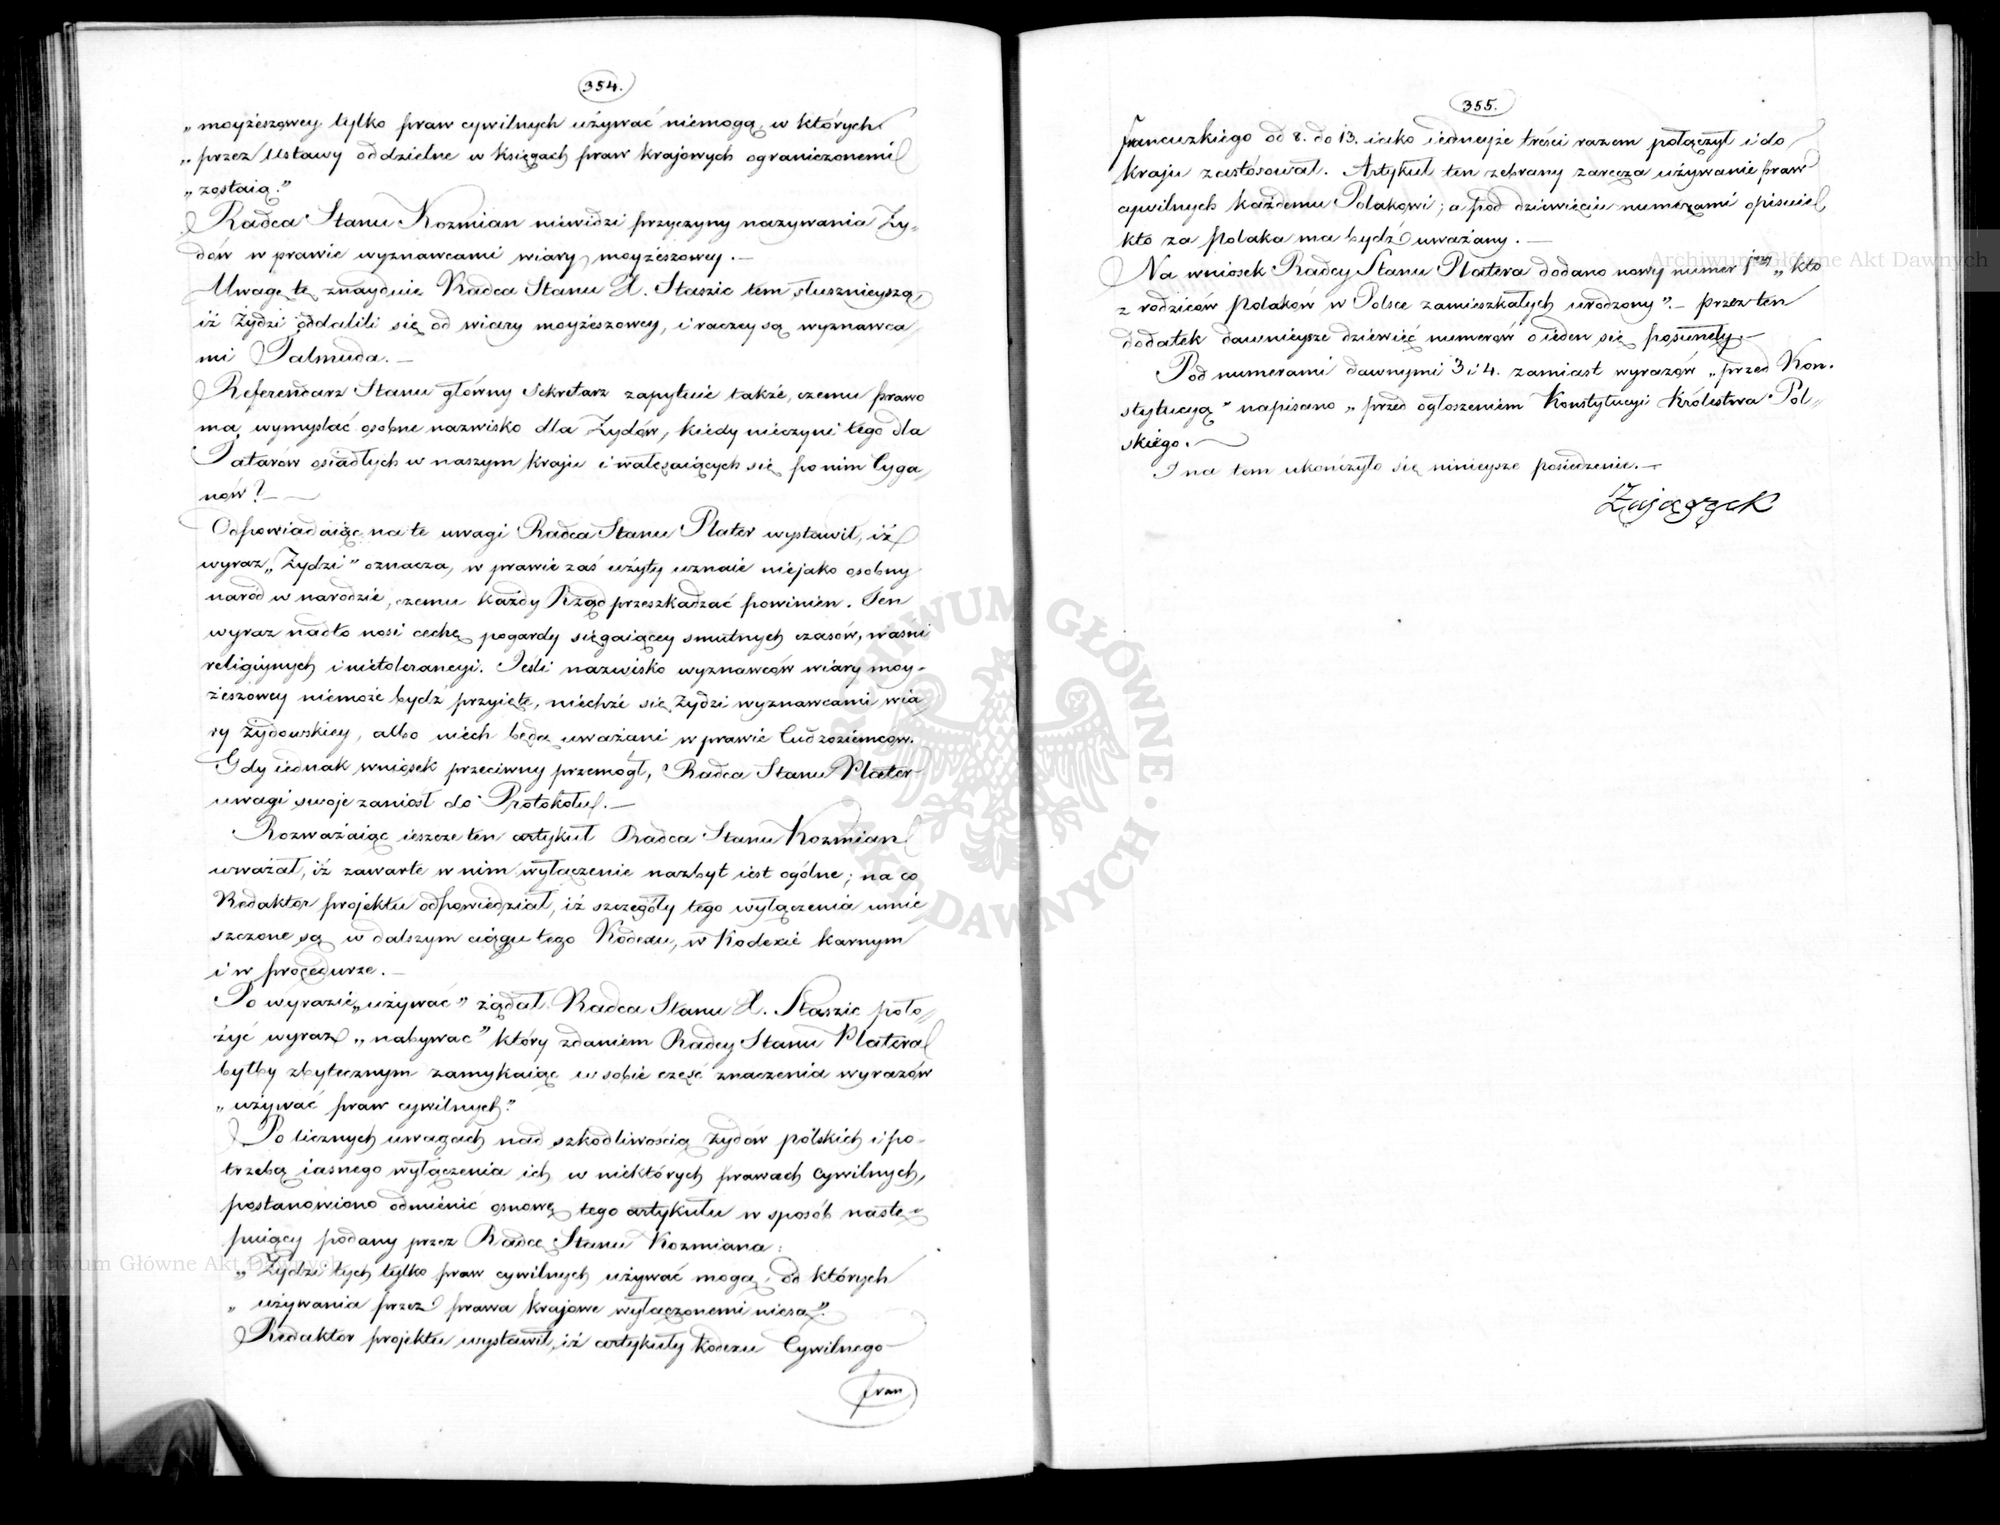 354.
„moyżeszowey tylko praw cywilnych używać niemogą, w których
„przez Ustawy oddzielne w księgach praw krajowych ograniczonemi
„zostaią."
Radca Stanu Kozmian niewidzi przyczyny nazywania Ży-
dów w prawie wyznawcami wiary moyżeszowey.—
Uwagę tę znayduie Radca Stanu X. Staszic tem słusznieyszą,
iż Żydzi oddalili się od wiary moyżeszowey, i raczey są wyznawca-
mi Talmuda.—
Referendarz Stanu główny Sekretarz zapytuie także, czemu prawo
ma wymyslać osobne nazwisko dla Żydów, kiedy nieczyni tego dla
Tatarów osiadłych w naszym kraju i wałęsaiących się po nim Cyga-
nów?—
Odpowiadaiąc na te uwagi Radca Stanu Plater wystawił, iż
wyraz „Żydzi" oznacza, w prawie zaś użyty uznaie niejako osobny
naród w narodzie, czemu każdy Rząd przeszkadzać powinien. Ten
wyraz nadto nosi cechę pogardy sięgaiącey smutnych czasów, waśni
religiynych i nietolerancyi. Jeśli nazwisko wyznawców wiary moy-
żeszowey niemoże bydź przyięte, niechże się Żydzi wyznawcami wia-
ry żydowskiey, albo niech będą uważani w prawie Cudzoziemców.
Gdy iednak wniosek przeciwny przemógł, Radca Stanu Plater
uwagi swoje zaniósł do Protokołu.—
Rozważaiąc ieszcze ten artykuł Radca Stanu Kozmian
uważał, iż zawarte w nim wyłączenie nazbyt iest ogólne; na co
Redaktor projektu odpowiedział, iż szczegóły tego wyłączenia umie
szczone są w dalszym ciągu tego Kodexu, w Kodexie karnym
i w procedurze.—
Po wyrazie „używać" żądał Radca Stanu X. Staszic poło-
żyć wyraz „nabywać" który zdaniem Radcy Stanu Platera
byłby zbytecznym zamykaiąc w sobie część znaczenia wyrazów
„używać praw cywilnych."
Po licznych uwagach nad szkodliwością żydów polskich i po-
trzebą iasnego wyłączenia ich w niektórych prawach cywilnych,
postanowiono odmienić osnowę tego artykułu w sposób nastę-
puiący podany przez Radcę Stanu Kozmiana:
„Żydzi tych tylko praw cywilnych używać mogą, od których
„używania przez prawa krajowe wyłączonemi niesą."
Redaktor projektu wystawił, iż artykuły kodexu Cywilnego
fran
355.
francuzkiego od 8. do 13. iako iedneyże treści razem połączył i do
kraju zastósował. Artykuł ten zebrany zaręcza używanie praw
cywilnych każdemu Polakowi; a pod dziewięciu numerami opisuie,
kto za Polaka ma bydź uważany.—
Na wniosek Radcy Stanu Platera dodano nowy numer 1szy „kto
z rodziców Polaków w Polsce zamieszkałych urodzony".— przez ten
dodatek dawnieysze dziewięć numerów o ieden się posunęły.—
Pod numerami dawnymi 3 i 4. zamiast wyrazów „przed Kon-
stytucyą" napisano „przed ogłoszeniem Konstytucyi Królestwa Pol-
skiego.—
I na tem ukończyło się ninieysze posiedzenie.—
Zajączek
ARCHIWUM GŁÓWNE AKT DAWNYCH
Archiwum Główne Akt Dawnych
Archiwum Główne Akt Dawnych